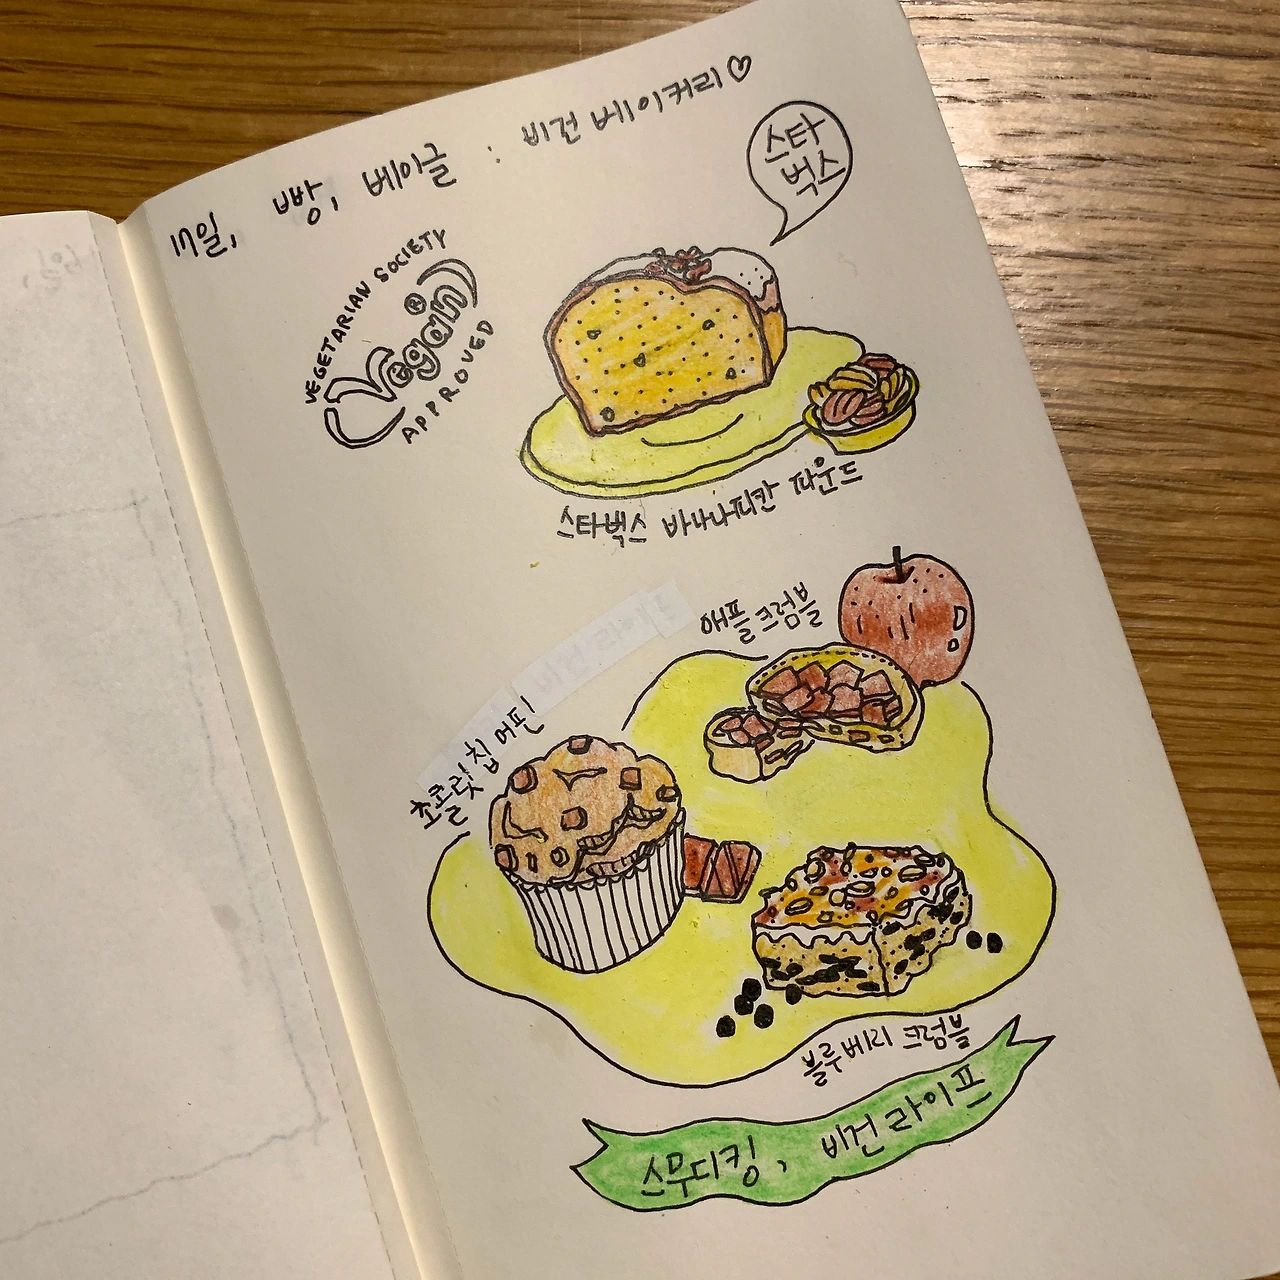 17일, 빵, 베이글 : 비건 베이커리♡
스타
벅스
VEGETARIAN SOCIETY
Vegan
APPROVED
스타벅스 바나나피칸 파운드
애플크럼블
초콜릿칩 머핀
블루베리 크럼블
스무디킹, 비건라이프